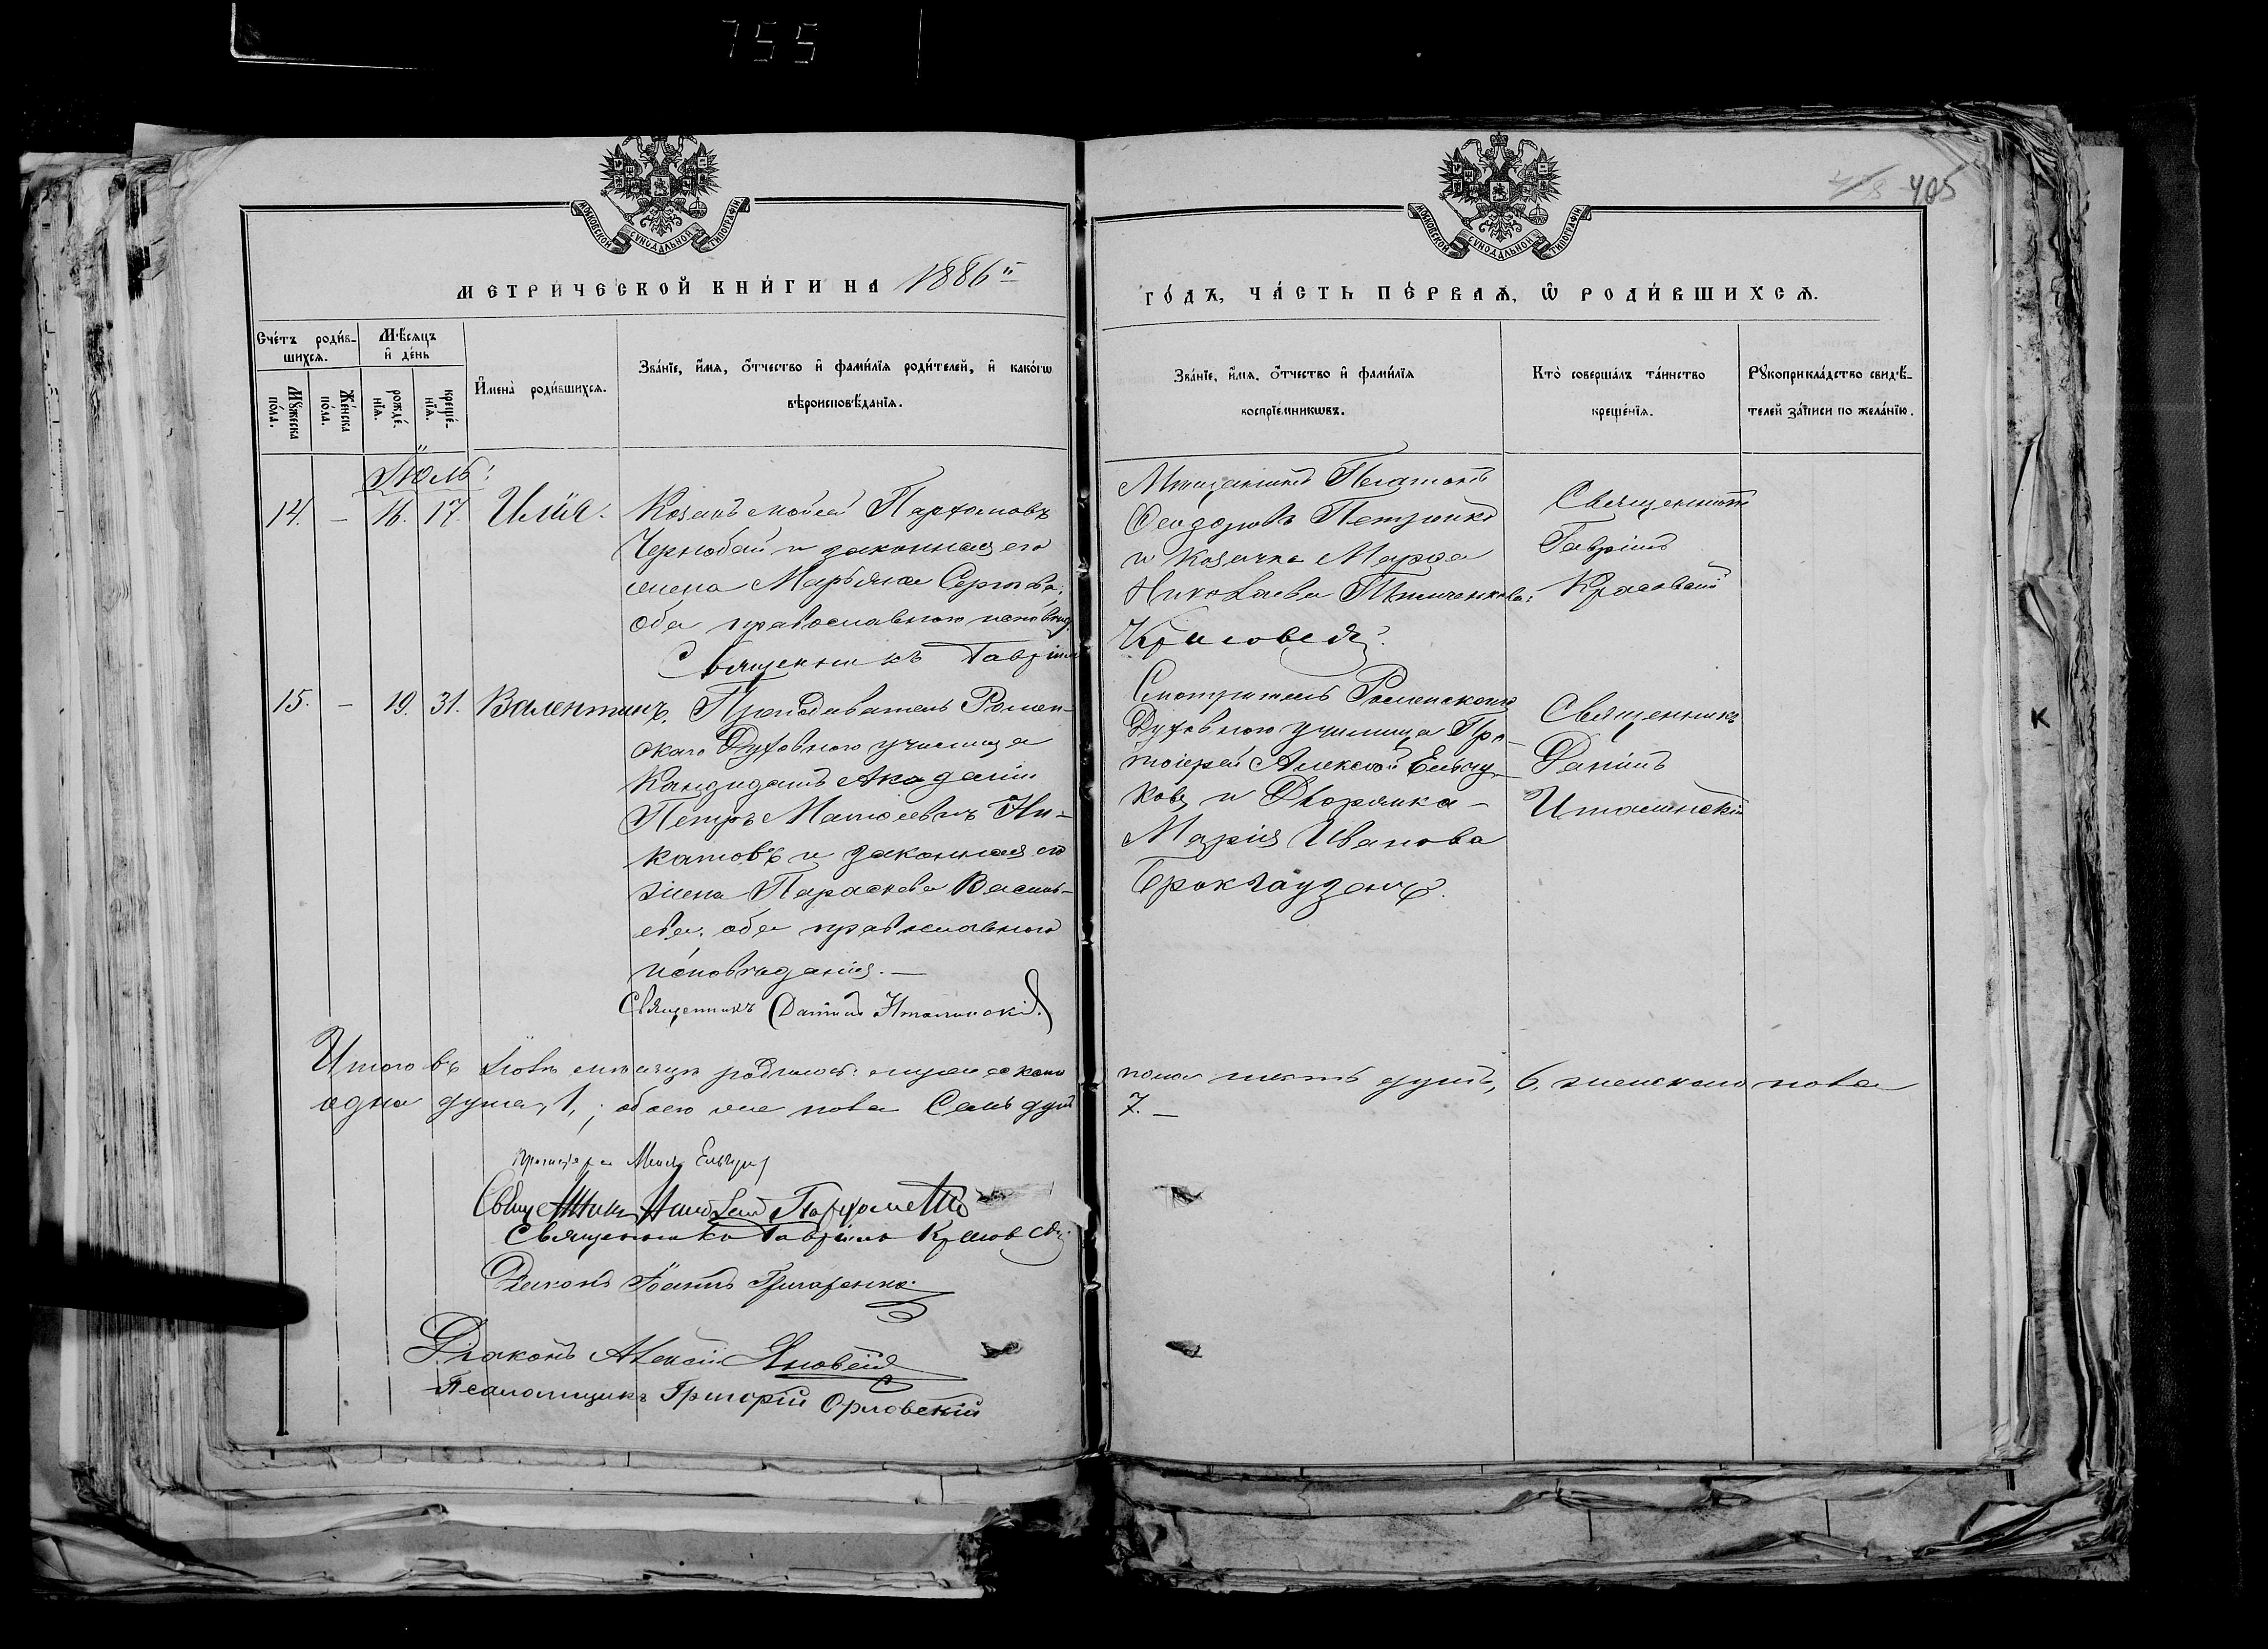 755
405
МОСКОВСКОЙ СѴНОДАЛЬНОЙ ТИПОГРАФІИ
МОСКОВСКОЙ СѴНОДАЛЬНОЙ ТИПОГРАФІИ
МЕТРИ́ЧЕСКОЙ КНИ́ГИ НА 1886й
ГО́ДЪ, ЧА́СТЬ ПЕ́РВАѦ, Ѿ РОДИ́ВШИХСѦ.
Сче́тъ роди́в-
шихсѧ.
Мѣ́сѧцъ
и҆ де́нь
Мꙋ́жеска
по́ла.
Же́нска
по́ла.
рожде́-
нїѧ.
креще́-
нїѧ.
И҆мена̀ роди́вшихсѧ.
Зва́нїе, и҆́мѧ, ѻ҆́тчество и҆ фами́лїѧ роди́телей, и҆ како́гѡ
вѣроисповѣ́данїѧ.
Зва́нїе, и҆́мѧ, ѻ҆́тчество и҆ фами́лїѧ
воспрїе́мникѡвъ.
Кто̀ соверша́лъ та́инство
креще́нїѧ.
Рꙋкоприкла́дство свидѣ́-
телей за́писи по жела́нїю.
Іюль:
14. — 16. 17. Илія. Козакъ Моѵсей Парѳомовъ
Чернобай и законная его
жена Марьяна Сергіева;
оба православного исповѣд.
Священникъ Гавріилъ
Мѣщанинъ Платонъ
Ѳеодоровъ Петренко
и козачка Марѳа
Николаева
Красовскій
Священникъ
Гавріилъ
Красовскій
15. — 19. 31. Валентинъ. Преподаватель Ромен-
скаго Духовного училища
Кандидатъ Академіи
Петръ Матѳеевичъ Ни-
катовъ и законная его
жена Параскева Василь-
ева: оба православного
исповѣданія. —
Священникъ Даніилъ Италинскій
Смотритель Роменского
Духовного училища Про-
тоіерей Алексѣй Ельчу-
ковъ и Дворянка —
Марія Иванова
Брокгаузенъ.
Священникъ
Даніилъ
Италинскій
Итого въ Іюлѣ мѣсяцѣ родилось: мужеского
пола шесть душъ, 6, женского пола
одна душа, 1,; обоего же пола Семь душъ
7. —
Протоіерей Алексѣй Ельчуковъ
Священникъ Пархоменко
Священникъ Гавріилъ Красовскій
Діаконъ Іоаннъ Григоренко
Діаконъ Алексій Яновскій
Псаломщикъ Григорій Орловскій
К